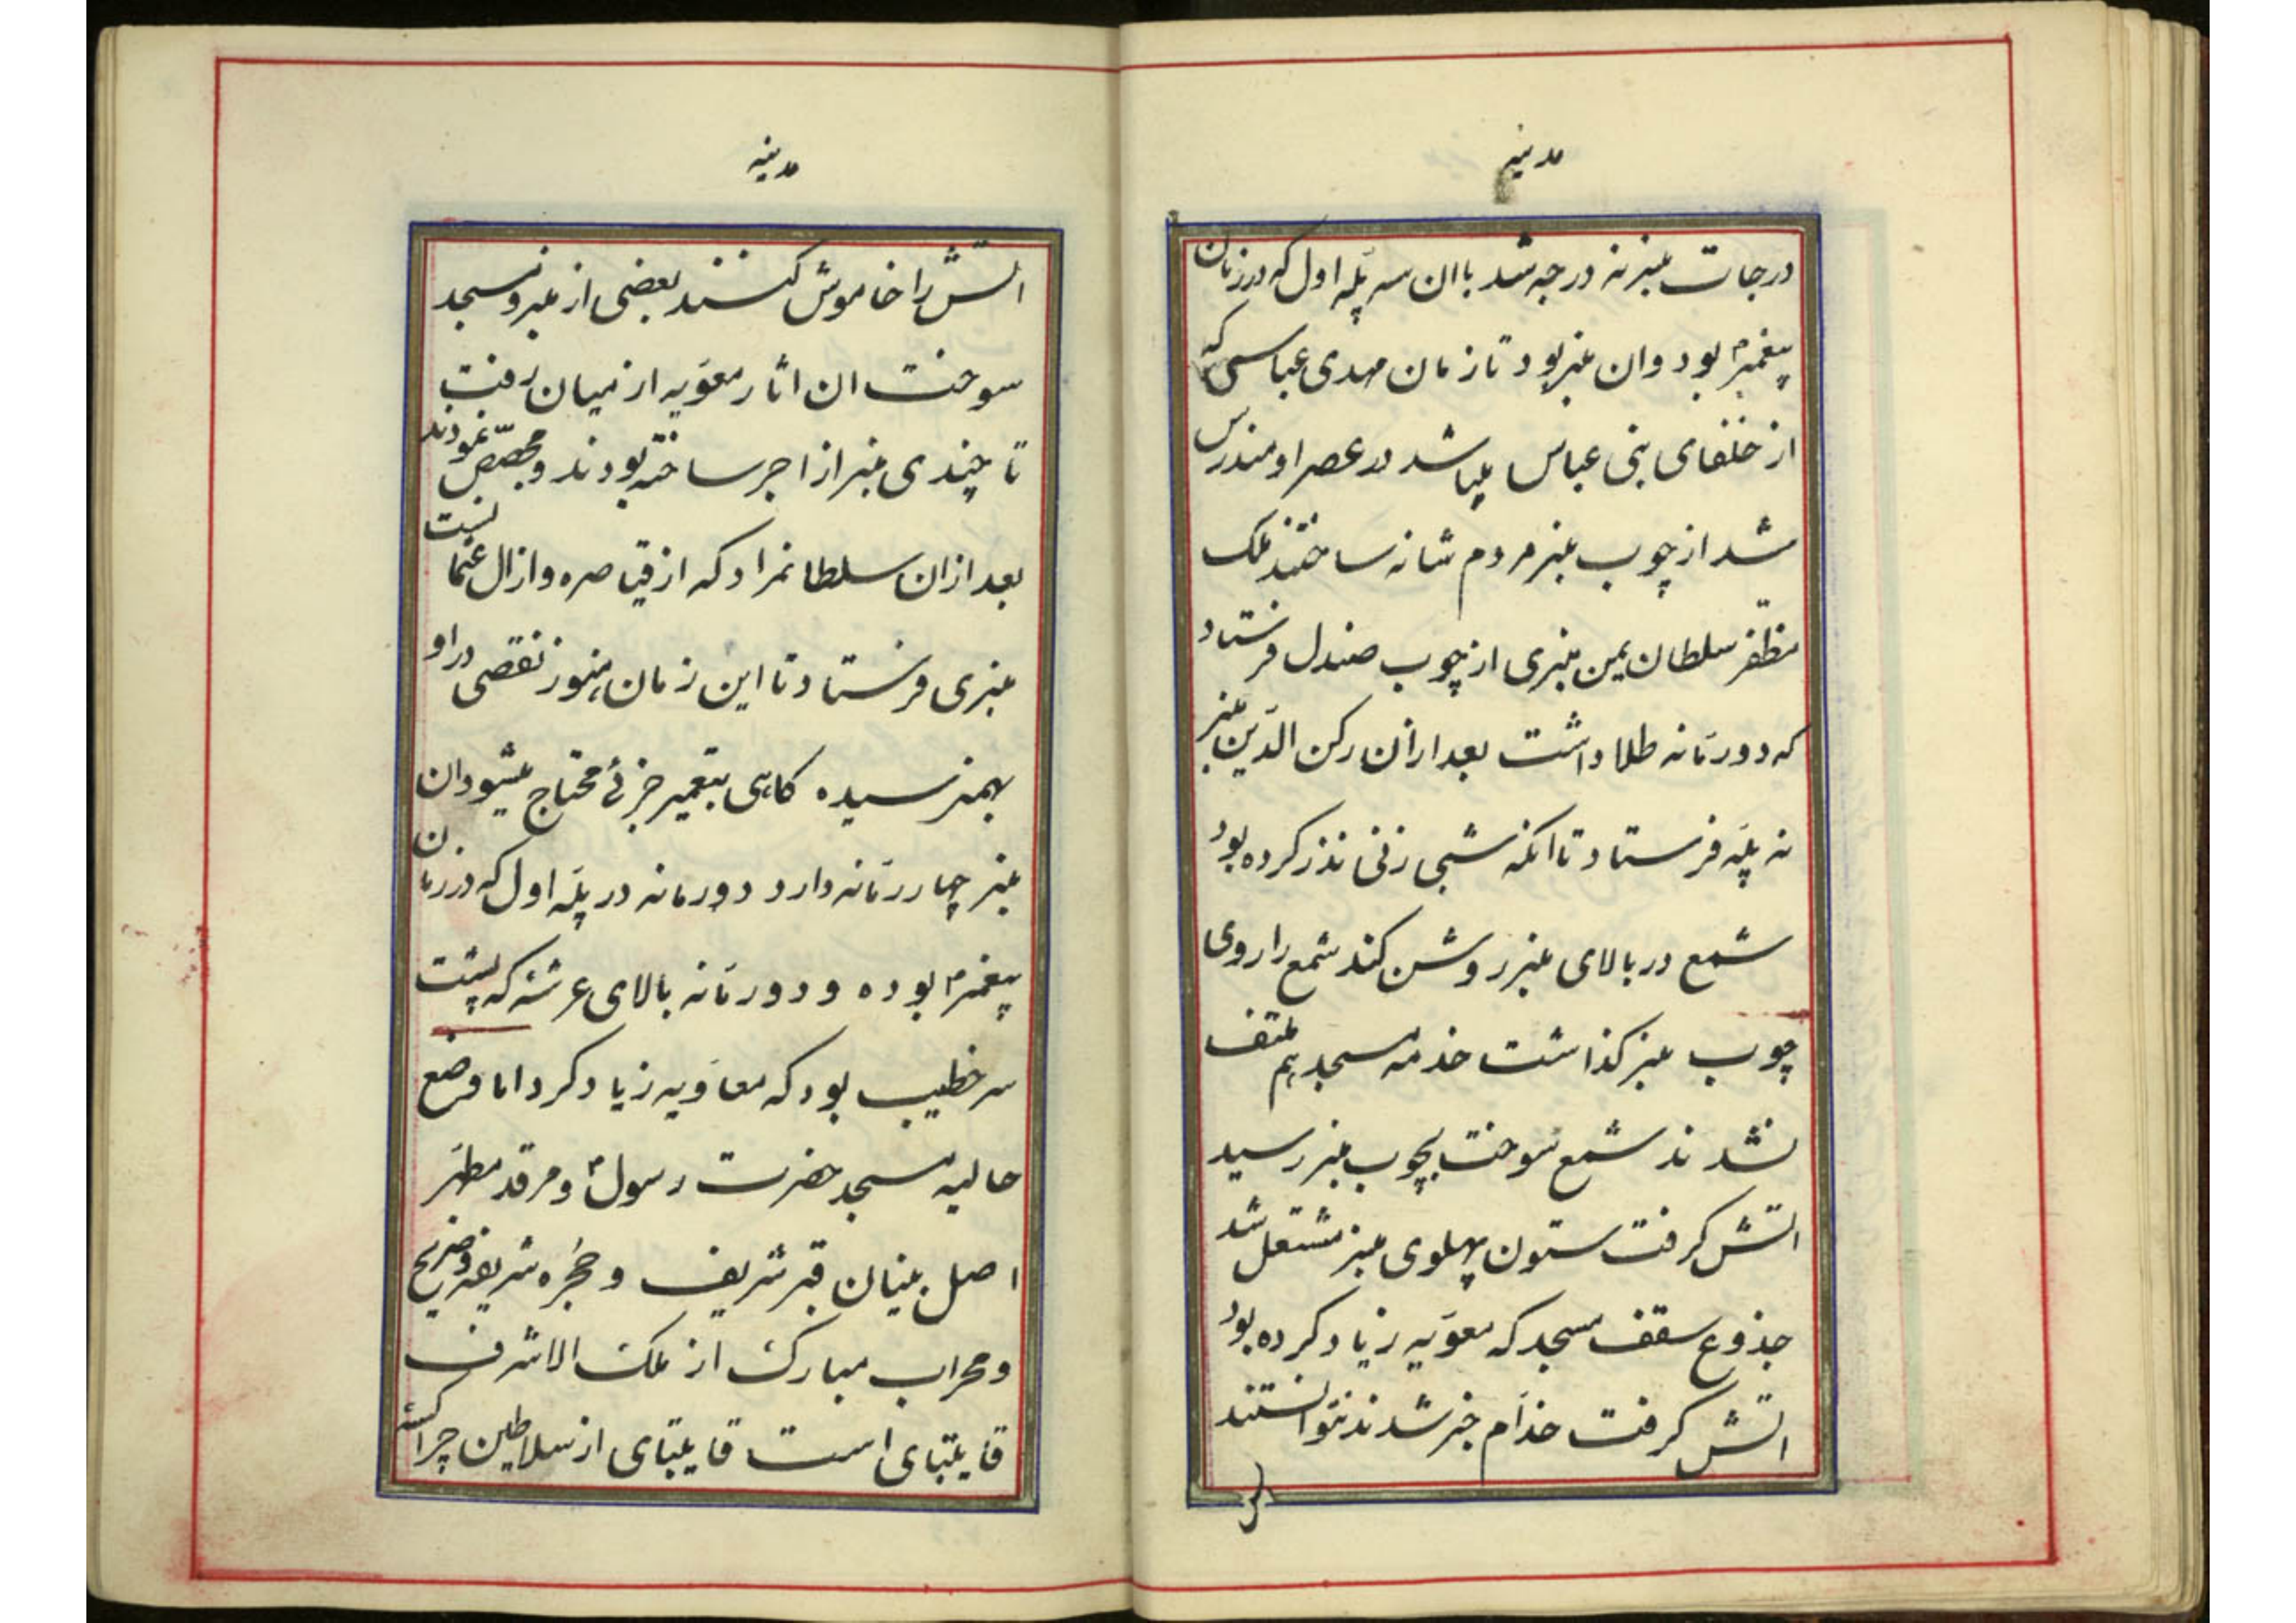 مدینه
درجات منبر نه درجه شد با ان سه پلّه اول که در زمان
پیغمبرم بود و ان منبر بود تا زمان مهدی عباسی که
از خلفای بنی عباس میباشد در عصر او مندرس
شد از چوب منبر مردم شانه ساختند ملک
مظفّر سلطان یمن منبری از چوب صندل فرستاد
که دو رمّانه طلا داشت بعد ازان رکن الدّین منبر
نه پلّه فرستاد تا انکه شبی زنی نذر کرده بود
شمع در بالای منبر روشن کند شمع را روی
چوب منبر کذاشت خدمه مسجد هم ملتفت
نشدند شمع سوخت بچوب منبر رسید
اتش کرفت ستون پهلوی منبر مشتعل شد
جذوع سقف مسجد که معویه زیاد کرده بود
اتش کرفت خدّام خبر شدند نتوانستند
مدینه
اتش را خاموش کنند بعضی از منبر و مسجد
سوخت ان اثار معویه از میان رفت
تا چندی منبر از اجر ساخته بودند و مجصّص نمودند
بعد ازان سلطانمراد که از قیاصره و از ال عثما نست
منبری فرستاد تا این زمان هنوز نقصی در او
بهمنرسیده کاهی بتعمیر جزئی محتاج میشود ان
منبر چهار رمّانه دارد دو رمانه در پلّه اول که در زمان
پیغمبرم بوده و دو رمّانه بالای عرشه که پشت
سر خطیب بود که معاویه زیاد کرد اما وضع
حالیه مسجد حضرت رسولم و مرقد مطهّر
اصل بنیان قبر شریف و حجره شریفه و ضریح
و محراب مبارک از ملک الاشرف
قایتبای است قایتبای از سلاطین چراکسه